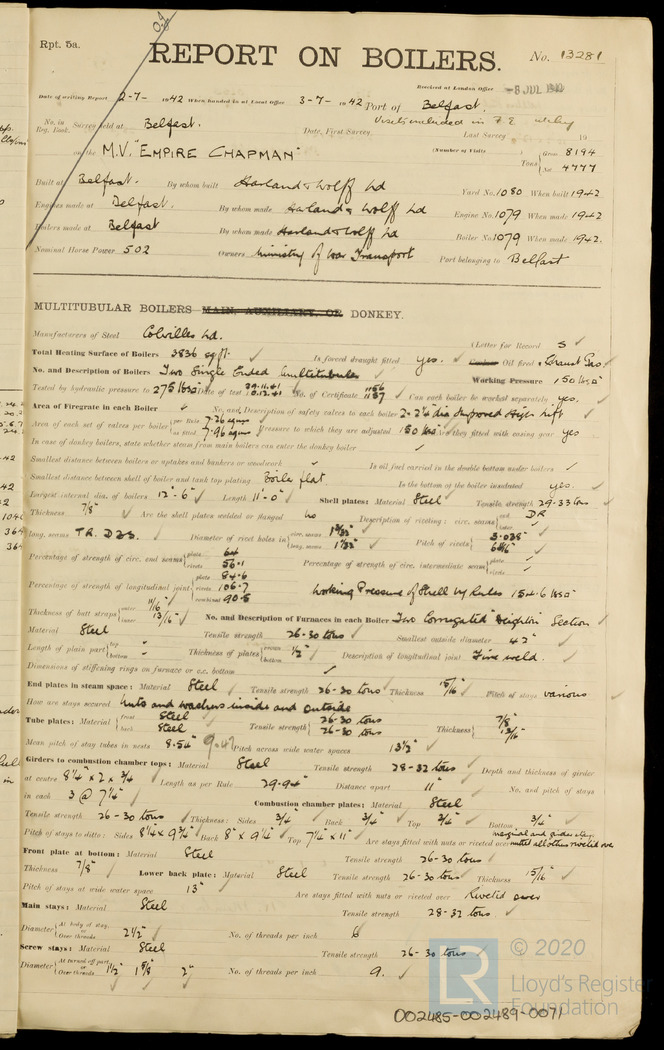 Rpt. 5a.
REPORT ON BOILERS.
No. 13281
Received at London Office -8 JUL 1942
Date of writing Report 2-7- 1942 When handed in at Local Office 3-7- 1942 Port of Belfast.
No. in Reg. Book. Survey held at Belfast. Date, First Survey Last Survey 19
on the M.V. "EMPIRE CHAPMAN" (Number of Visits) Tons { Gross 8194 Net 4777
Built at Belfast. By whom built Harland & Wolff Ld Yard No. 1080 When built 1942
Engines made at Belfast. By whom made Harland & Wolff Ld Engine No. 1079 When made 1942
Boilers made at Belfast By whom made Harland & Wolff Ld Boiler No. 1079 When made 1942.
Nominal Horse Power 502 Owners Ministry of War Transport Port belonging to Belfast
MULTITUBULAR BOILERS MAIN, AUXILIARY, OR DONKEY.
Manufacturers of Steel Colvilles Ld. (Letter for Record S )
Total Heating Surface of Boilers 3836 sq ft. Is forced draught fitted yes. Coal or Oil fired & Exhaust Gas
No. and Description of Boilers Two Single Ended Multitubular Working Pressure 150 lbs□"
Tested by hydraulic pressure to 275 lbs□" Date of test 29.11.41 10.12.41 No. of Certificate 1156 1157 Can each boiler be worked separately yes.
Area of Firegrate in each Boiler No. and Description of safety valves to each boiler 2-2¼" dia Improved High lift
Area of each set of valves per boiler { per Rule 7.26 sq ins as fitted 7.96 sq ins Pressure to which they are adjusted 150 lbs□" Are they fitted with easing gear yes
In case of donkey boilers, state whether steam from main boilers can enter the donkey boiler
Smallest distance between boilers or uptakes and bunkers or woodwork Is oil fuel carried in the double bottom under boilers
Smallest distance between shell of boiler and tank top plating Boiler flat. Is the bottom of the boiler insulated yes.
Largest internal dia. of boilers 12'-6" Length 11'-0" Shell plates: Material Steel Tensile strength 29-33 tons
Thickness 7/8" Are the shell plates welded or flanged no Description of riveting: circ. seams { end DR inter.
long. seams TR. DBS. Diameter of rivet holes in { circ. seams long. seams Pitch of rivets { 3.038"
Percentage of strength of circ. end seams { plate 64 rivets 56.1 Percentage of strength of circ. intermediate seam { plate rivets
Percentage of strength of longitudinal joint { plate 84.6 rivets 106.7 combined 90.5 Working Pressure of Shell by Rules 154.6 lbs□"
Thickness of butt straps { outer 11/16" inner 13/16" No. and Description of Furnaces in each Boiler Two Corrugated Deighton Section
Material Steel Tensile strength 26-30 tons Smallest outside diameter 42"
Length of plain part { top bottom Thickness of plates { crown bottom 1/2" Description of longitudinal joint Fire weld.
Dimensions of stiffening rings on furnace or c.c. bottom
End plates in steam space: Material Steel Tensile strength 26-30 tons Thickness 15/16" Pitch of stays various
How are stays secured Nuts and washers inside and outside
Tube plates: Material { front Steel back Steel Tensile strength { 26-30 tons 26-30 tons Thickness { 7/8" 13/16"
Mean pitch of stay tubes in nests 8.54" 9.47 Pitch across wide water spaces 13½"
Girders to combustion chamber tops: Material Steel Tensile strength 28-32 tons Depth and thickness of girder
at centre 8¼" x 2 x ¾" Length as per Rule 29.94" Distance apart 11" No. and pitch of stays
in each 3 @ 7¼" Combustion chamber plates: Material Steel
Tensile strength 26-30 tons Thickness: Sides ¾" Back ¾" Top ¾" Bottom ¾"
Pitch of stays to ditto: Sides 8¼" x 9¾" Back 8" x 9¼" Top 7¼" x 11" Are stays fitted with nuts or riveted over marginal and girder stays nutted all others riveted over
Front plate at bottom: Material Steel Tensile strength 26-30 tons
Thickness 7/8" Lower back plate: Material Steel Tensile strength 26-30 tons Thickness 15/16"
Pitch of stays at wide water space 13" Are stays fitted with nuts or riveted over Riveted over
Main stays: Material Steel Tensile strength 28-32 tons.
Diameter { At body of stay, or Over threads 2½" No. of threads per inch 6
Screw stays: Material Steel Tensile strength 26-30 tons
Diameter { At turned off part, or Over threads 1½" 1⅝" 2" No. of threads per inch 9.
© 2020
Lloyd's Register
Foundation
002485-002489-0071